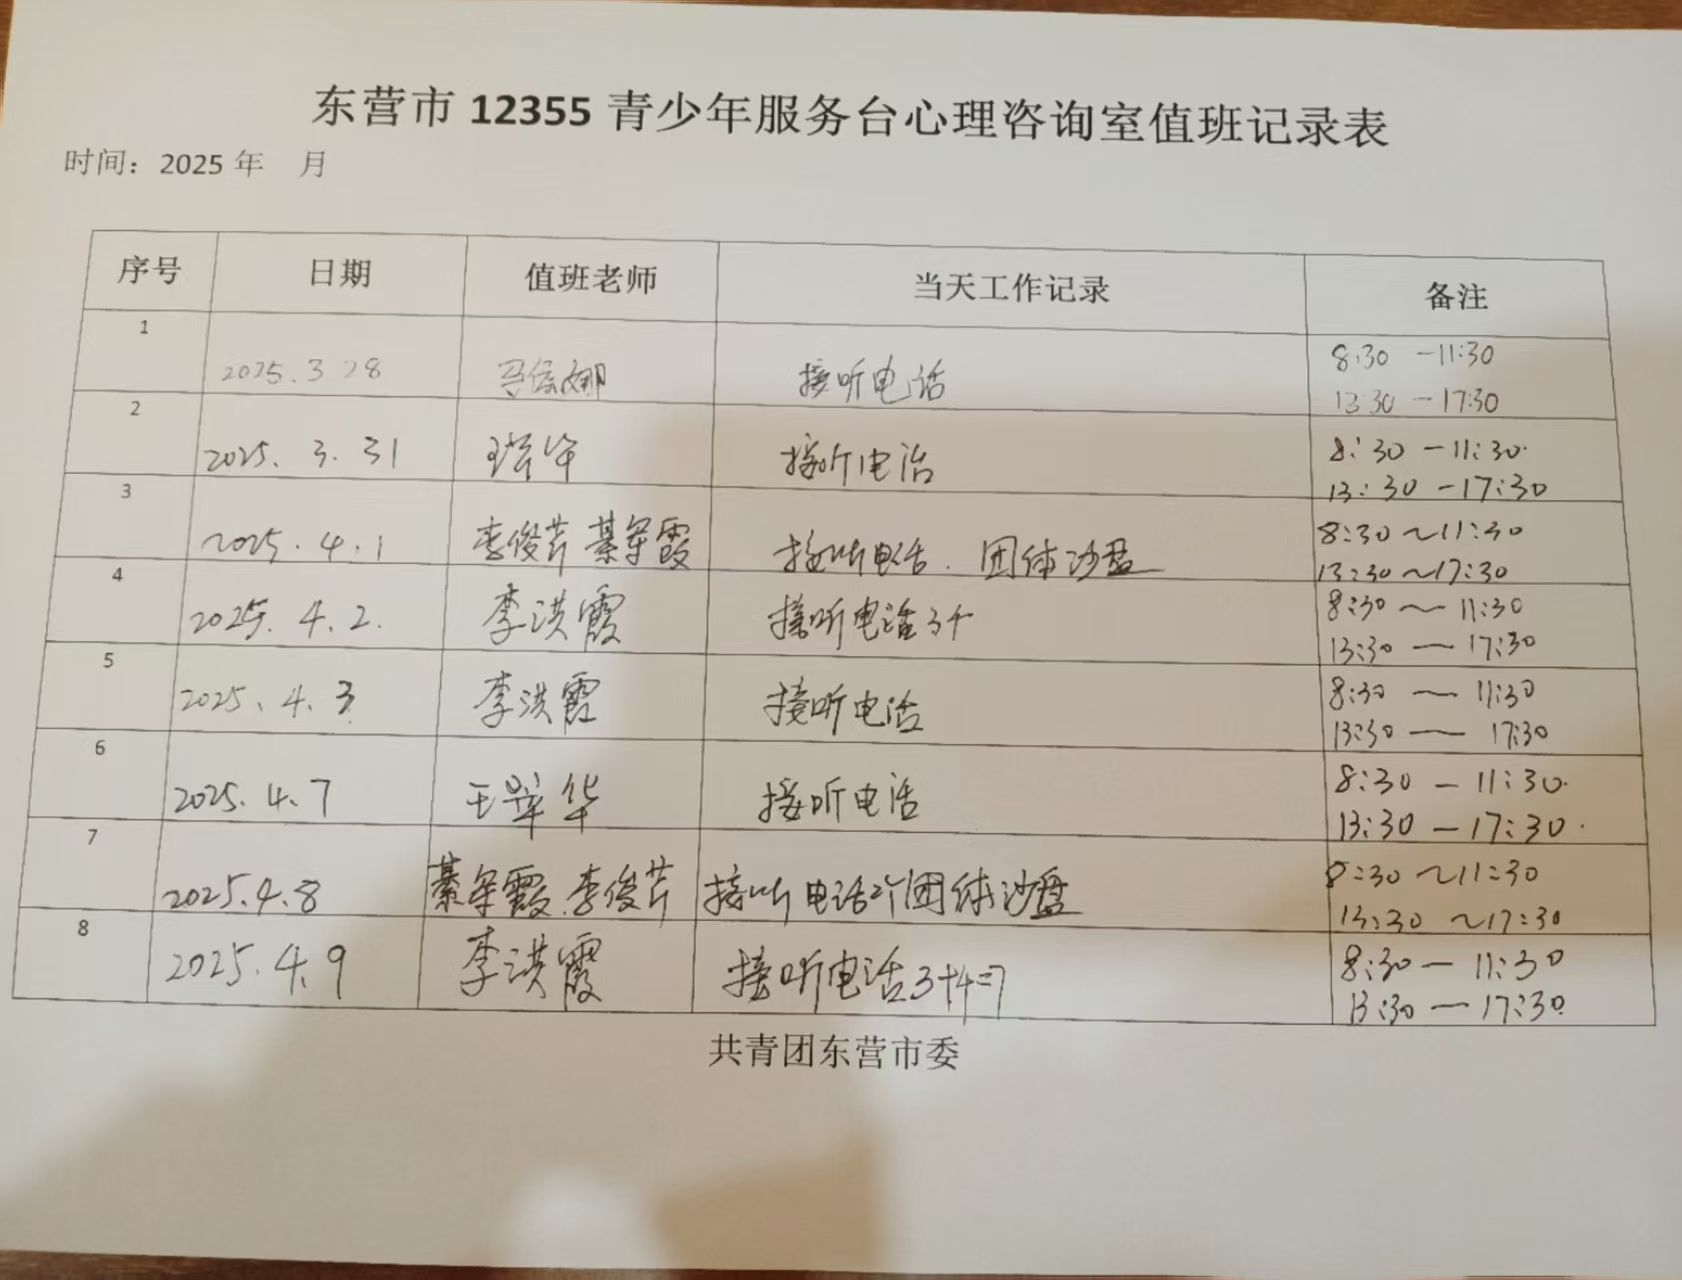 东营市 12355 青少年服务台心理咨询室值班记录表
时间：2025 年 月
序号 日期 值班老师 当天工作记录 备注
1 2025.3 28 接听电话 8:30 —11:30
13:30 —17:30
2 2025. 3. 31 接听电话 8:30 —11:30.
13:30 —17:30
3 2025. 4. 1 李俊芹 綦军霞 接听电话. 团体沙盘 8:30～11:30
13:30～17:30
4 2025. 4. 2. 李洪霞 接听电话3个 8:30 — 11:30
13:30 — 17:30
5 2025. 4. 3 李洪霞 接听电话 8:30 — 11:30
13:30 — 17:30
6 2025. 4. 7 王翠华 接听电话 8:30 — 11:30.
13:30 — 17:30.
7 2025.4.8 綦军霞.李俊芹 接听电话2个团体沙盘 8:30 ～11:30
13:30 ～17:30
8 2025.4.9 李洪霞 接听电话3+4=7 8:30 — 11:30
13:30 — 17:30
共青团东营市委